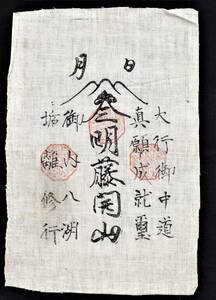 月　日
大行御中道
真願成就璽
三明藤開山
御内八湖
垢離修行